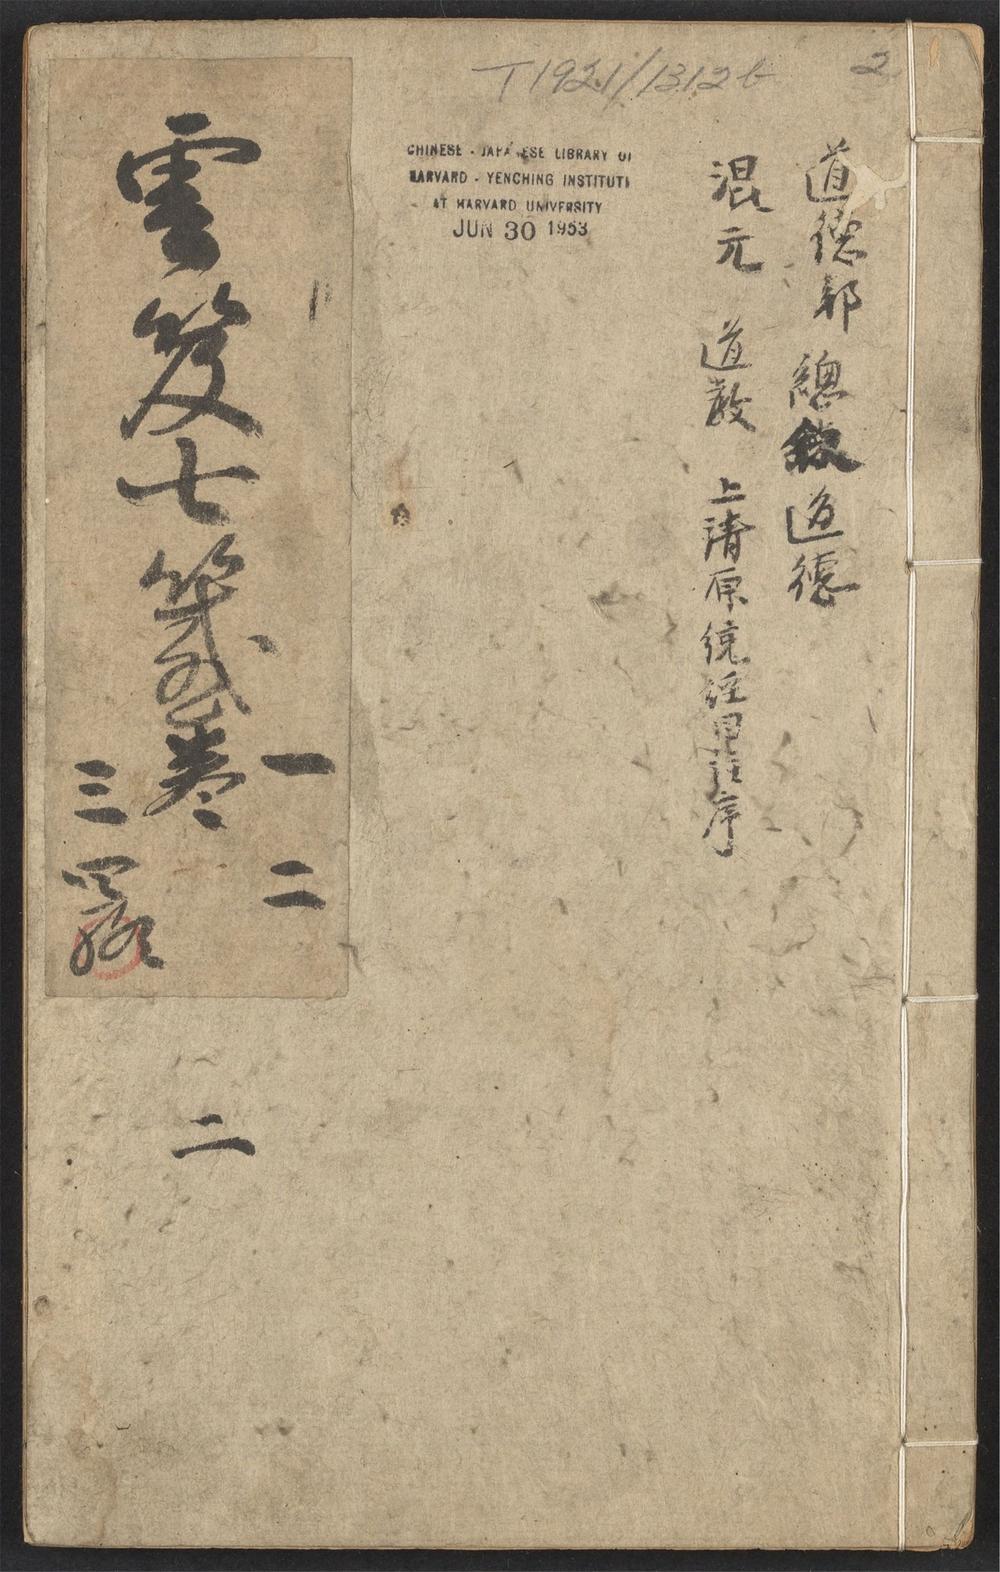 T1921/1312b
2
CHINESE - JAPANESE LIBRARY OF
HARVARD - YENCHING INSTITUTE
AT HARVARD UNIVERSITY
JUN 30 1953
道德部 總敘 道德
混元 道教 上清原統經目註序
雲笈七籤卷
一 二
三 四
二